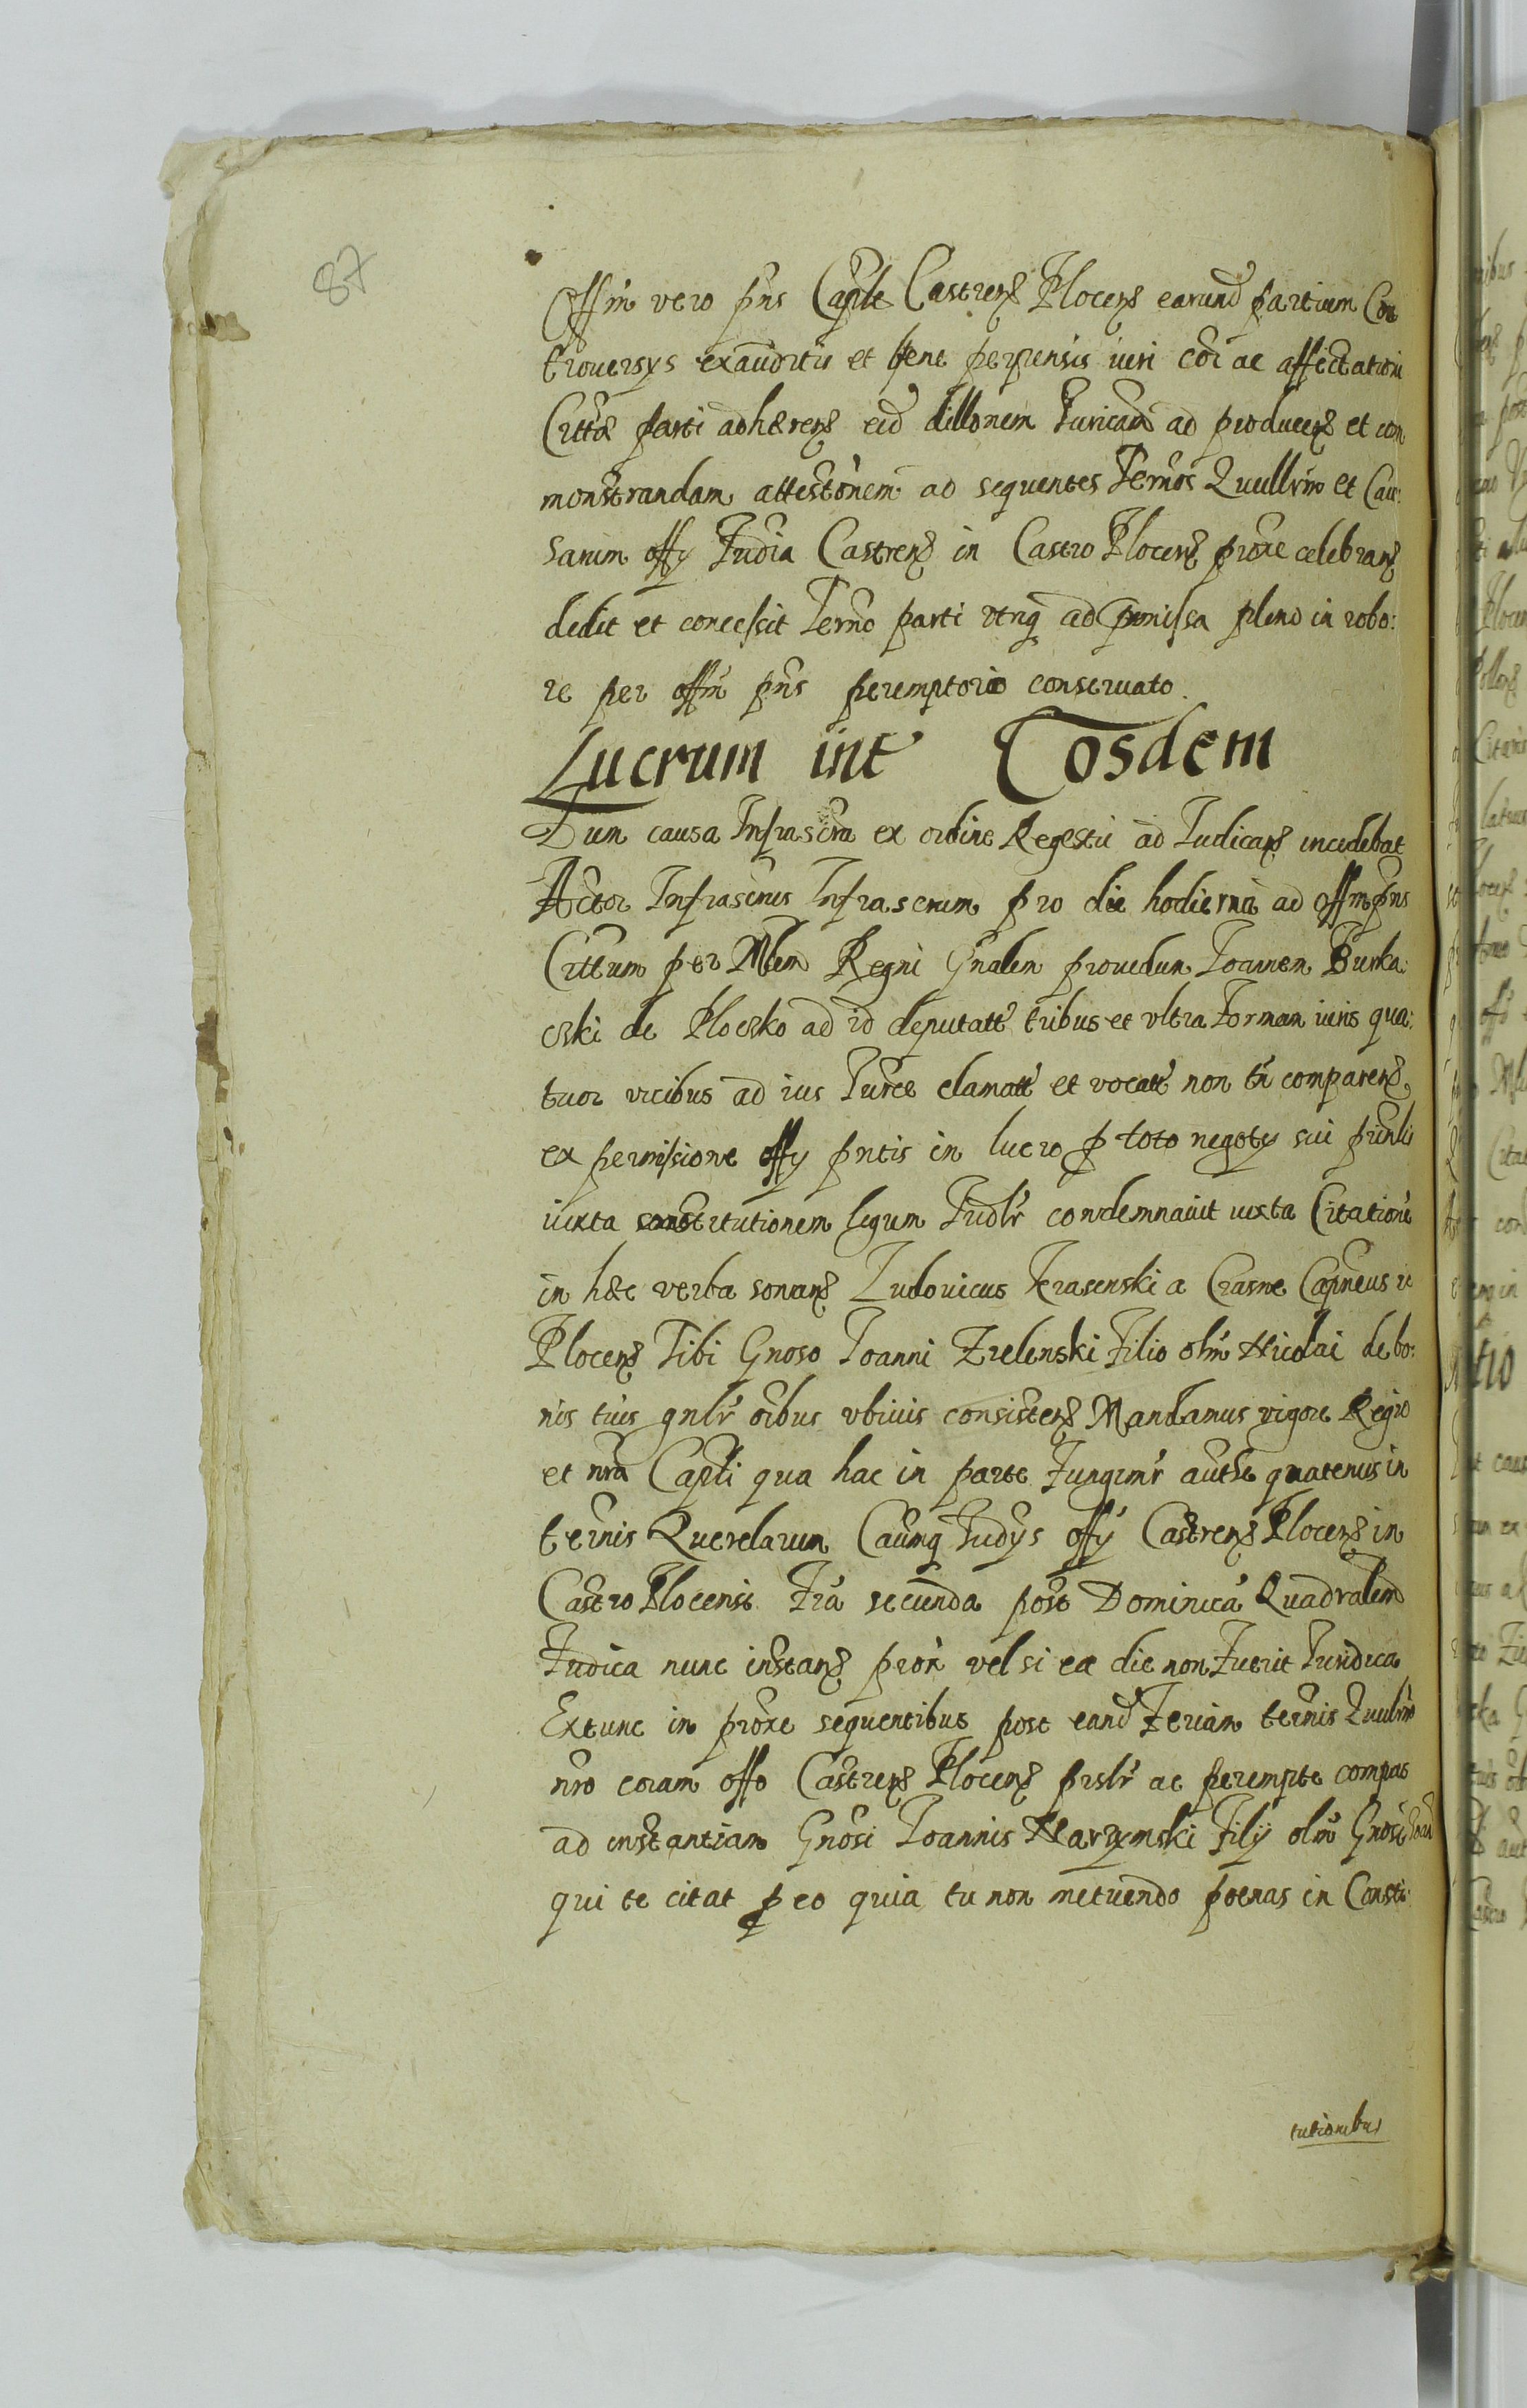 87
Offm vero pns Caple Castren Plocen earund partium Con
trouersys exauditis et bene perpensis iuri coi ac affectationi
Cittae parti adhaeren eid dillonem Juricam ad producen et com
monstrandam attestonem ad sequentes Termos Quullrm et Cau:
sarum offy Judia Castren in Castro Plocen proxe celebran
dedit et concessit Termo parti vtrq ad pmissa pleno in robo:
re per offm pns peremptorio conseruato.
Lucrum int Eosdem
Dum causa Infrascra ex ordine Regestri ad Judican incidebat
Actor Infrascrus Infrascrum pro die hodierna ad offm pns
Cittum per Mlem Regni Gnalen prouidum Joannem Burka:
cski de Ploczko ad id deputatt tribus et vltra Forman iuris qua:
tuor vicibus ad ius Jurce clamatt et vocatt non tn comparen
ex permissione offy pntis in lucro p toto negoty sui prinli
iuxta constitutionem legum Judlr condemnauit iuxta Citatione
in haec verba sonan Ludouicus Krasenski a Crasne Capneus
Plocen Tibi Gnoso Joanni Zielenski Filio olm Nicolai de bo:
nis tuis gnlr oibus vbiuis consisten Mandamus vigore Regio
et nra Capli qua hac in parte Fungimr authe quatenus in
termis Querelarum Caumq Judys offy Castren Plocen in
Castro Plocensi Fra secunda post Dominica Quadralem
Judica nunc instan prox vel si ea die non Fuerit Juridica
Extunc in proxe sequentibus post eand Feriam termis Quulrm
nro coram offo Castren Plocen prslr ac perempte compas
ad instantiam Gnosi Joannis Narzymski Filij olm Gnosi
qui te citat p eo quia tu non metuendo poenas in Consti:
tutionibus